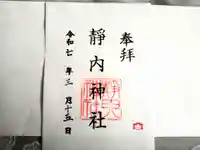 奉拝
靜内神社
令和七年三月十五日